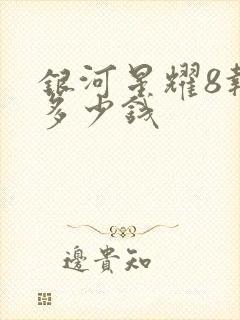 銀河星耀8報
多少錢
邊貴知